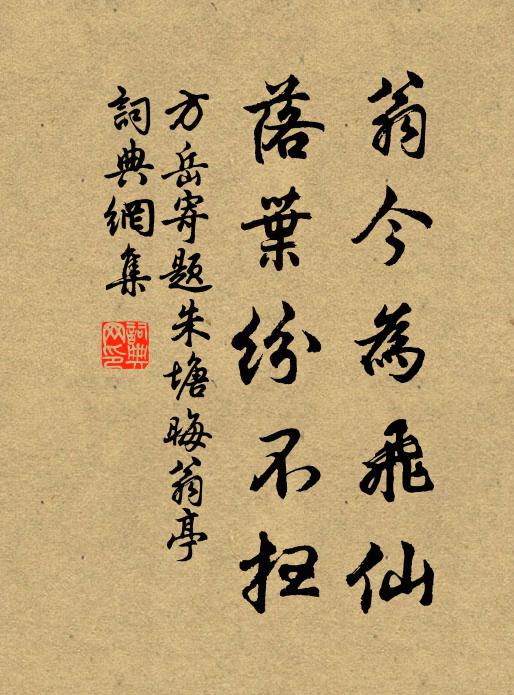 翁今為飛仙
落葉紛不扫
方岳寄題朱塘晦翁亭
詞典網集
詞典
网印